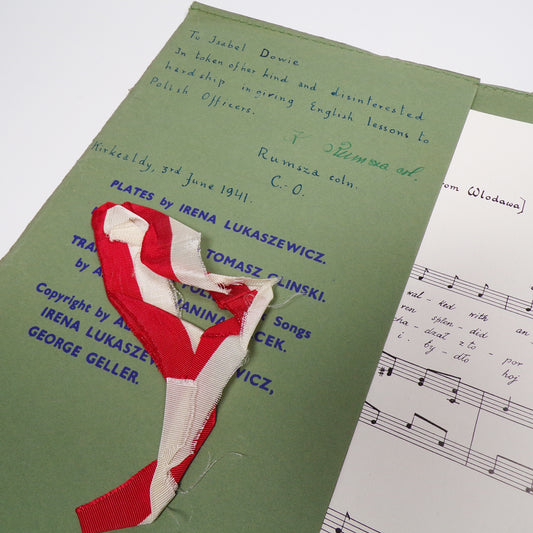 To Isabel Dowie
In token of her kind and disinterested
hardship in giving English lessons to
Polish Officers.
Rumsza col.
Rumsza coln.
C.-O.
Kirkcaldy, 3rd June 1941.
PLATES by IRENA LUKASZEWICZ.
TOMASZ GLINSKI.
by
Songs
Copyright by
IRENA LUKASZEWICZ,
GEORGE GELLER.
from Wlodawa]
wal - ked with an
splen - did
dzał z to - por
i. by - dło hoj